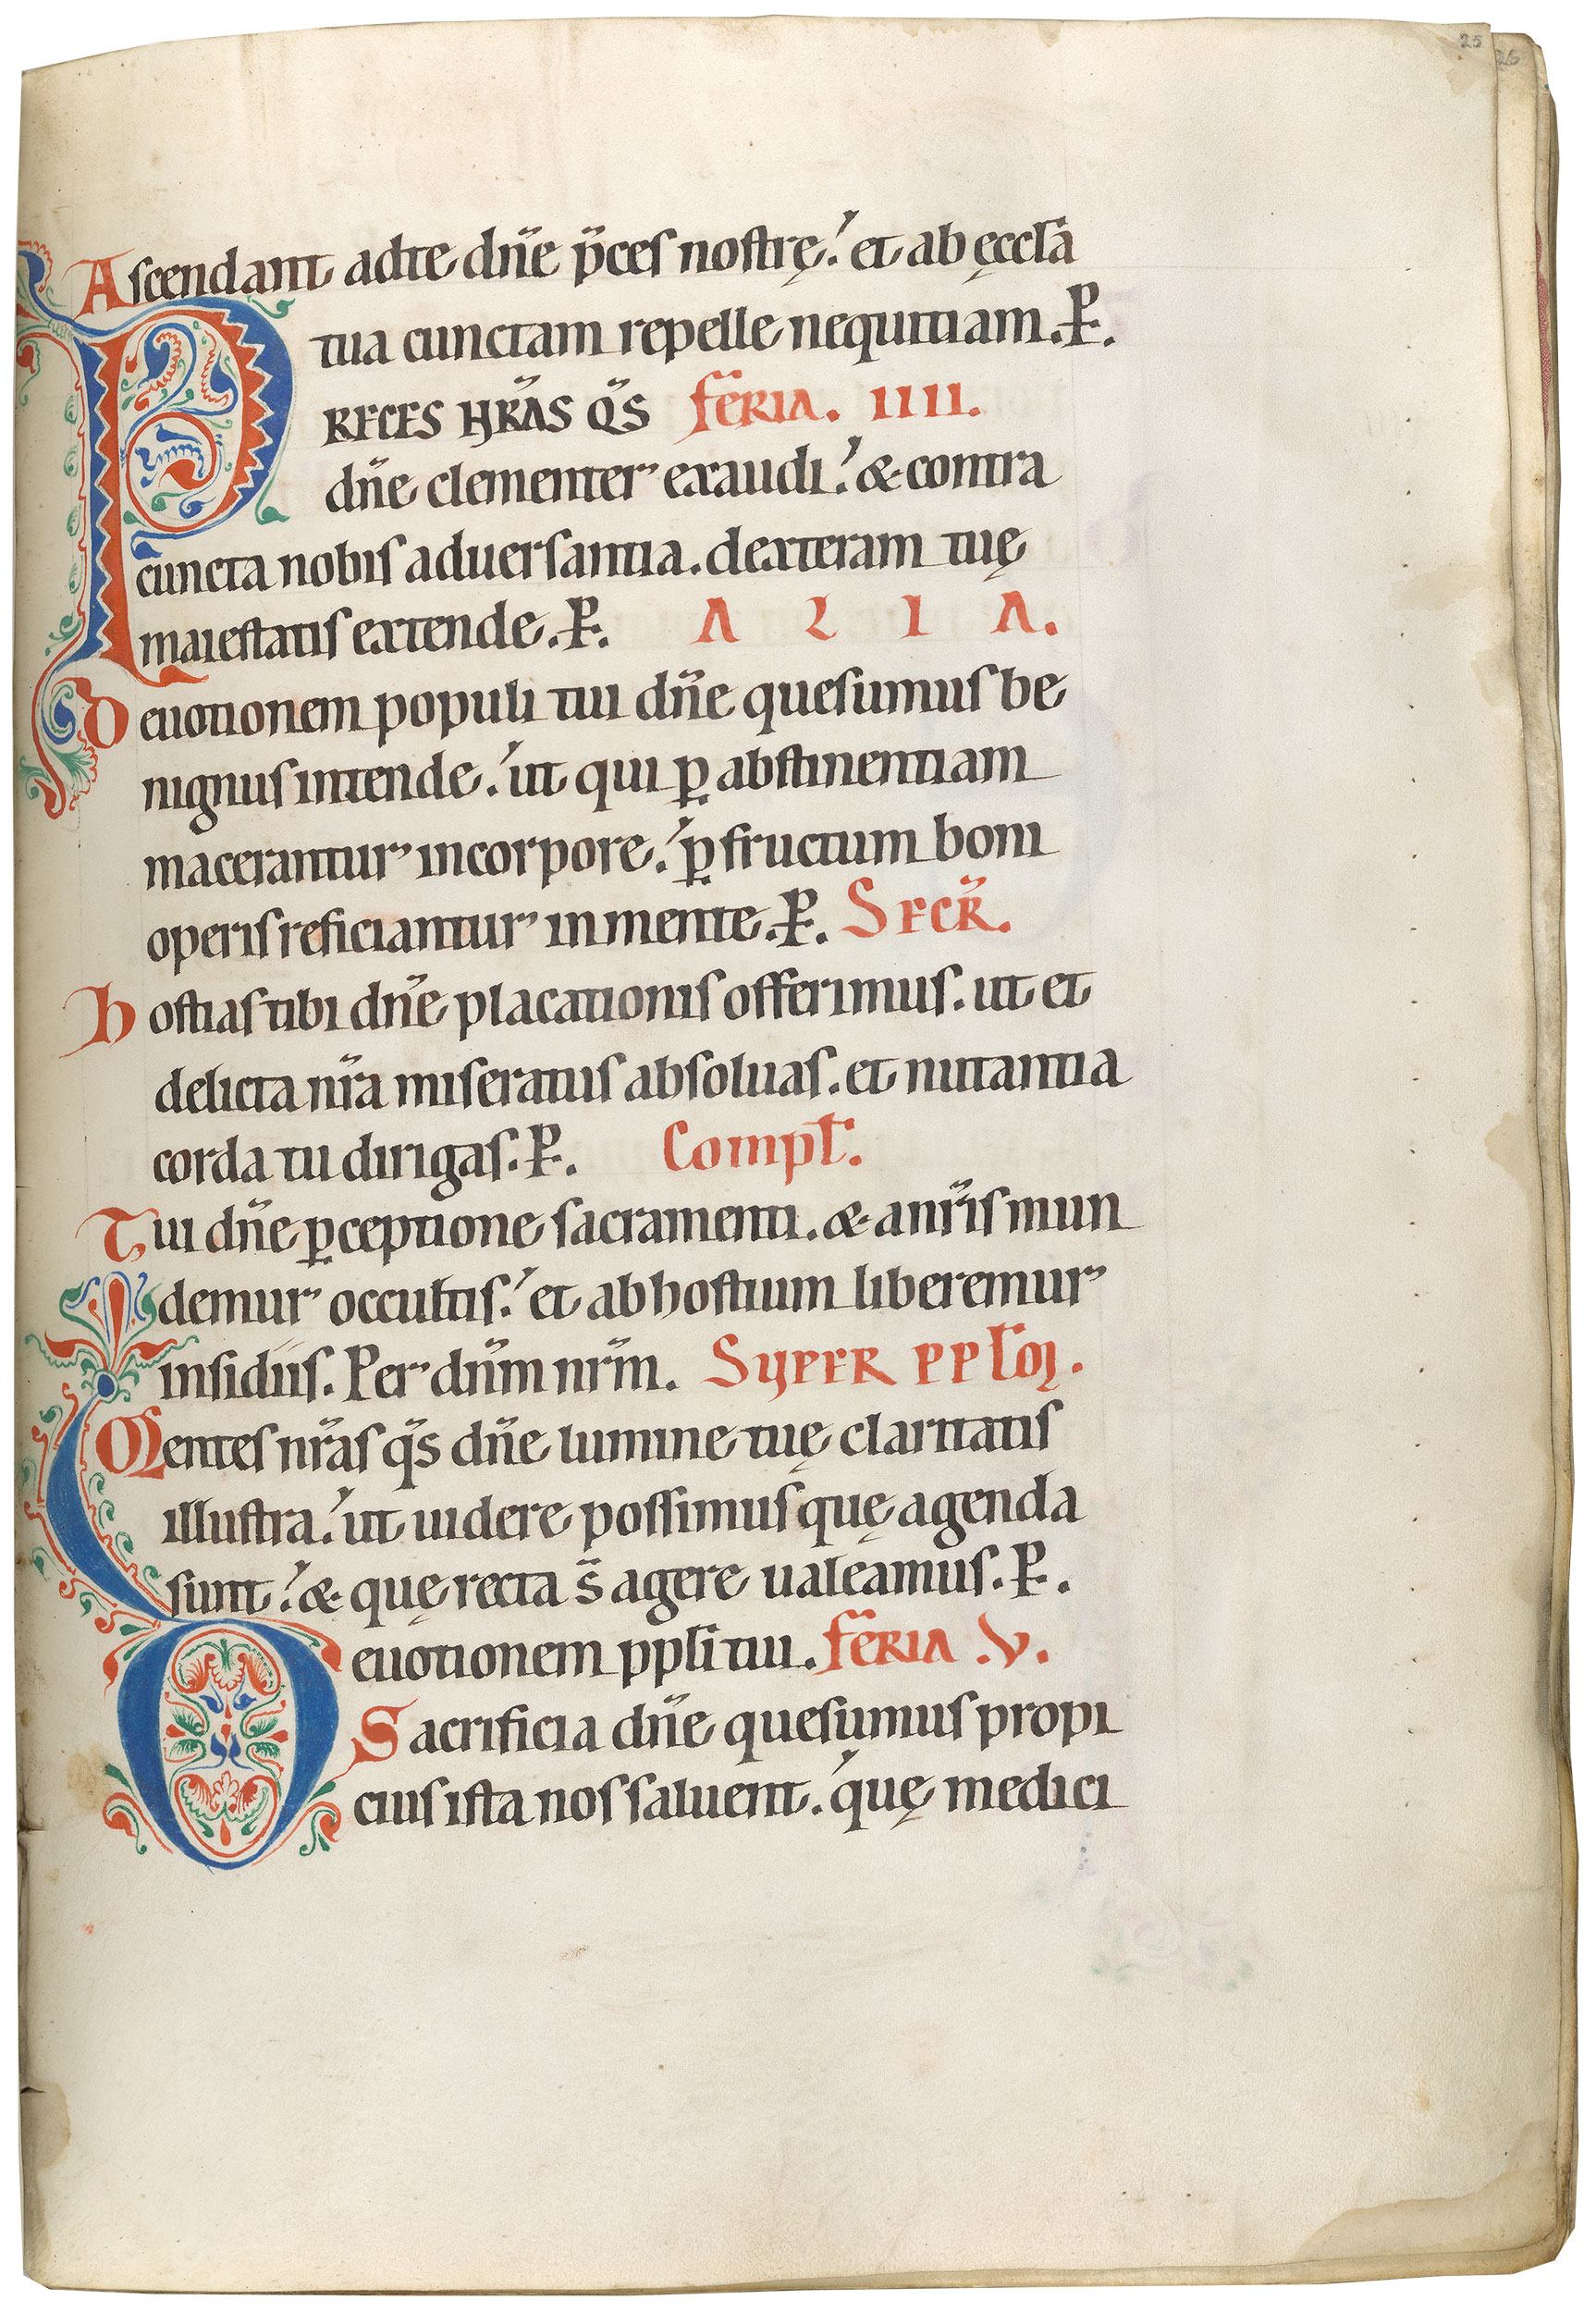 25
26
Ascendant adte dñe p̄ces nostrę. et ab ęccl̄a
tua cunctam repelle nequitiam. P.
PRECES NR̄AS Q̄S FERIA. IIII.
dñe clementer exaudi. & contra
cuncta nobis aduersantia. dexteram tuę
maiestatis extende. P. ALIA.
Deuotionem populi tui dñe quesumus be
nignus intende. ut qui ꝑ abstinentiam
macerantur incorpore. ꝑ fructum boni
operis reficiantur in mente. P. SECR̄.
Hostias tibi dñe placationis offerimus. ut et
delicta nr̄a miseratus absoluas. et nutantia
corda tu dirigas. P. Compł.
Tui dñe ꝑceptione sacramenti. & anr̄is mun
demur occultis. et ab hostium liberemur
insidiis. Per dn̄m nr̄m. SUPER PPŁOꝜ.
Mentes nr̄as q̄s dñe lumine tuę claritatis
illustra. ut uidere possimus quę agenda
sunt. & quę recta s̄ agere ualeamus. P.
Deuotionem ppłi tui. FERIA .V.
Sacrificia dñe quesumus propi
cius ista nos saluent. quę medici